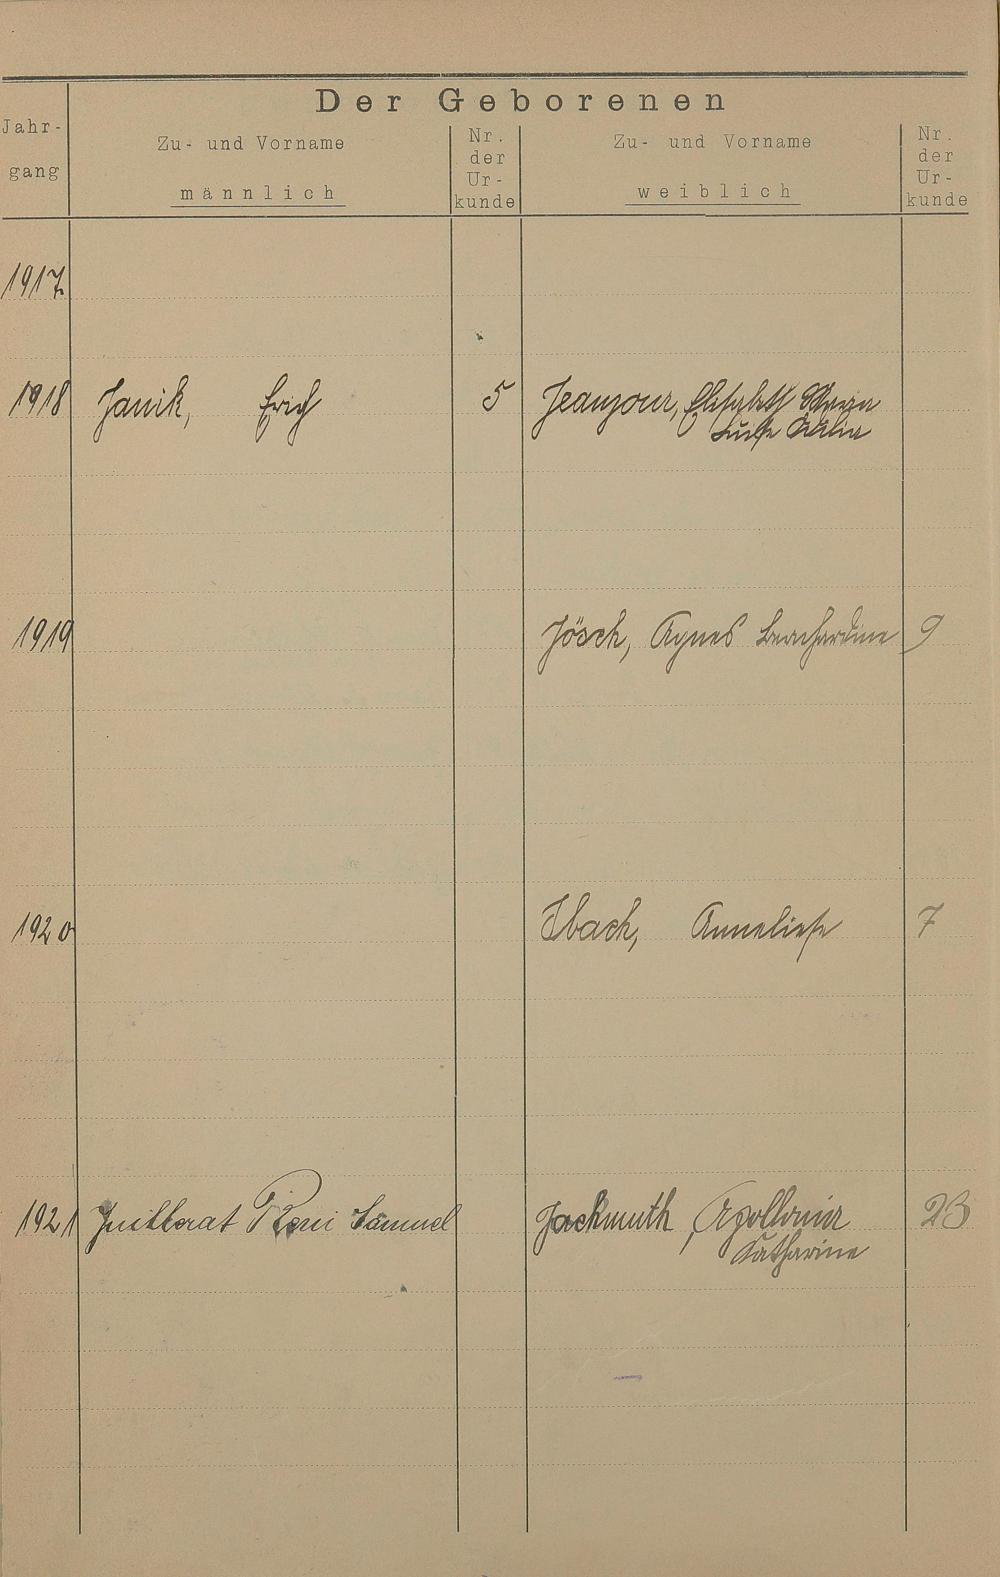 Der Geborenen
Jahr-
gang
Zu- und Vorname
männlich
Nr.
der
Ur-
kunde
Zu- und Vorname
weiblich
Nr.
der
Ur-
kunde
1917
1918 Janik, Erich 5 Elisabeth Maria
Luise
1919 Jösch, Agnes Bernhardine 9
1920 Ibach, Anneliese 7
1921 Juillerat Samuel Jackmuth, Apollonia 23
Katharine